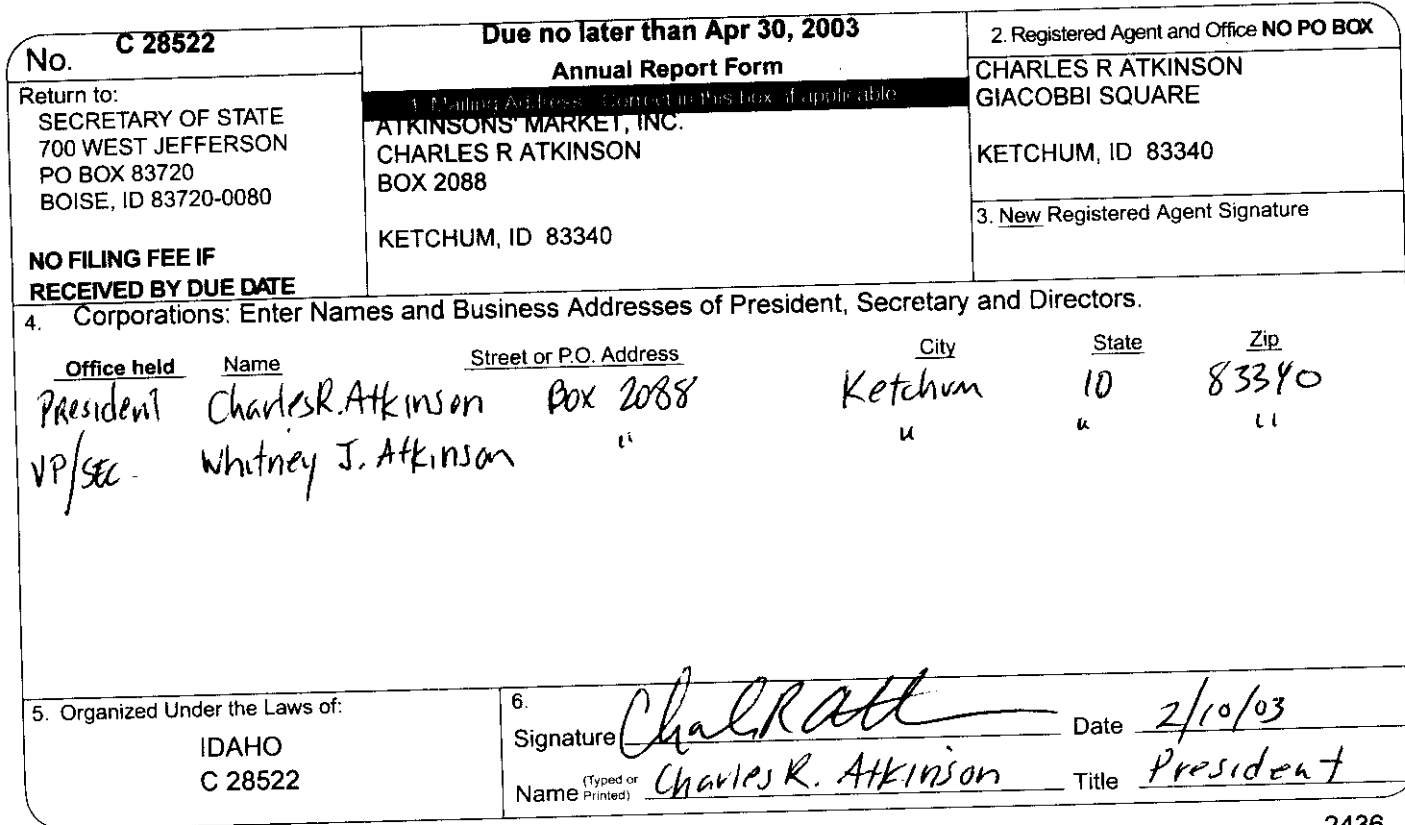 No. C 28522
Return to:
SECRETARY OF STATE
700 WEST JEFFERSON
PO BOX 83720
BOISE, ID 83720-0080
NO FILING FEE IF
RECEIVED BY DUE DATE
Due no later than Apr 30, 2003
Annual Report Form
1. Mailing Address: Correct in this box if applicable
ATKINSONS' MARKET, INC.
CHARLES R ATKINSON
BOX 2088
KETCHUM, ID 83340
2. Registered Agent and Office NO PO BOX
CHARLES R ATKINSON
GIACOBBI SQUARE
KETCHUM, ID 83340
3. New Registered Agent Signature
4. Corporations: Enter Names and Business Addresses of President, Secretary and Directors.
Office held Name Street or P.O. Address City State Zip
President Charles R. Atkinson Box 2088 Ketchum ID 83340
VP/SEC. Whitney J. Atkinson " " " "
5. Organized Under the Laws of:
IDAHO
C 28522
6.
Signature Date 2/10/03
Name (Typed or Printed) Charles R. Atkinson Title President
2436